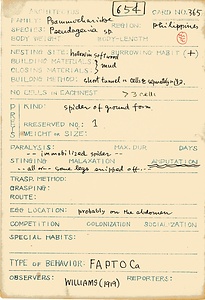 ARCHITECTURE 654 CARD NO. 365
FAMILY: REGION: Philippines
SPECIES: Pseudagenia sp.
BODY HEIGHT BODY-LENGTH
NESTING SITE: BURROWING HABIT (+)
BUILDING MATERIALS } mud
CLOSING MATERIALS
BUILDING METHOD: short tunnel + cells
NO CELLS IN EACH NEST > 3 cells
KIND: spider of ground form
PRESERVED NO.: 1
WEIGHT or SIZE:
PARALYSIS: MAX. DUR DAYS
-- immobilized spider --
STINGING MALAXATION AMPUTATION
-- all or some legs snipped off --
TRASP. METHOD:
GRASPING:
ROUTE:
EGG LOCATION: probably on the abdomen
COMPETITION COLONIZATION SOCIALIZATION
SPECIAL HABITS:
TYPE OF BEHAVIOR: FAPTOCa
OBSERVERS: WILLIAMS (1919) REPORTERS: